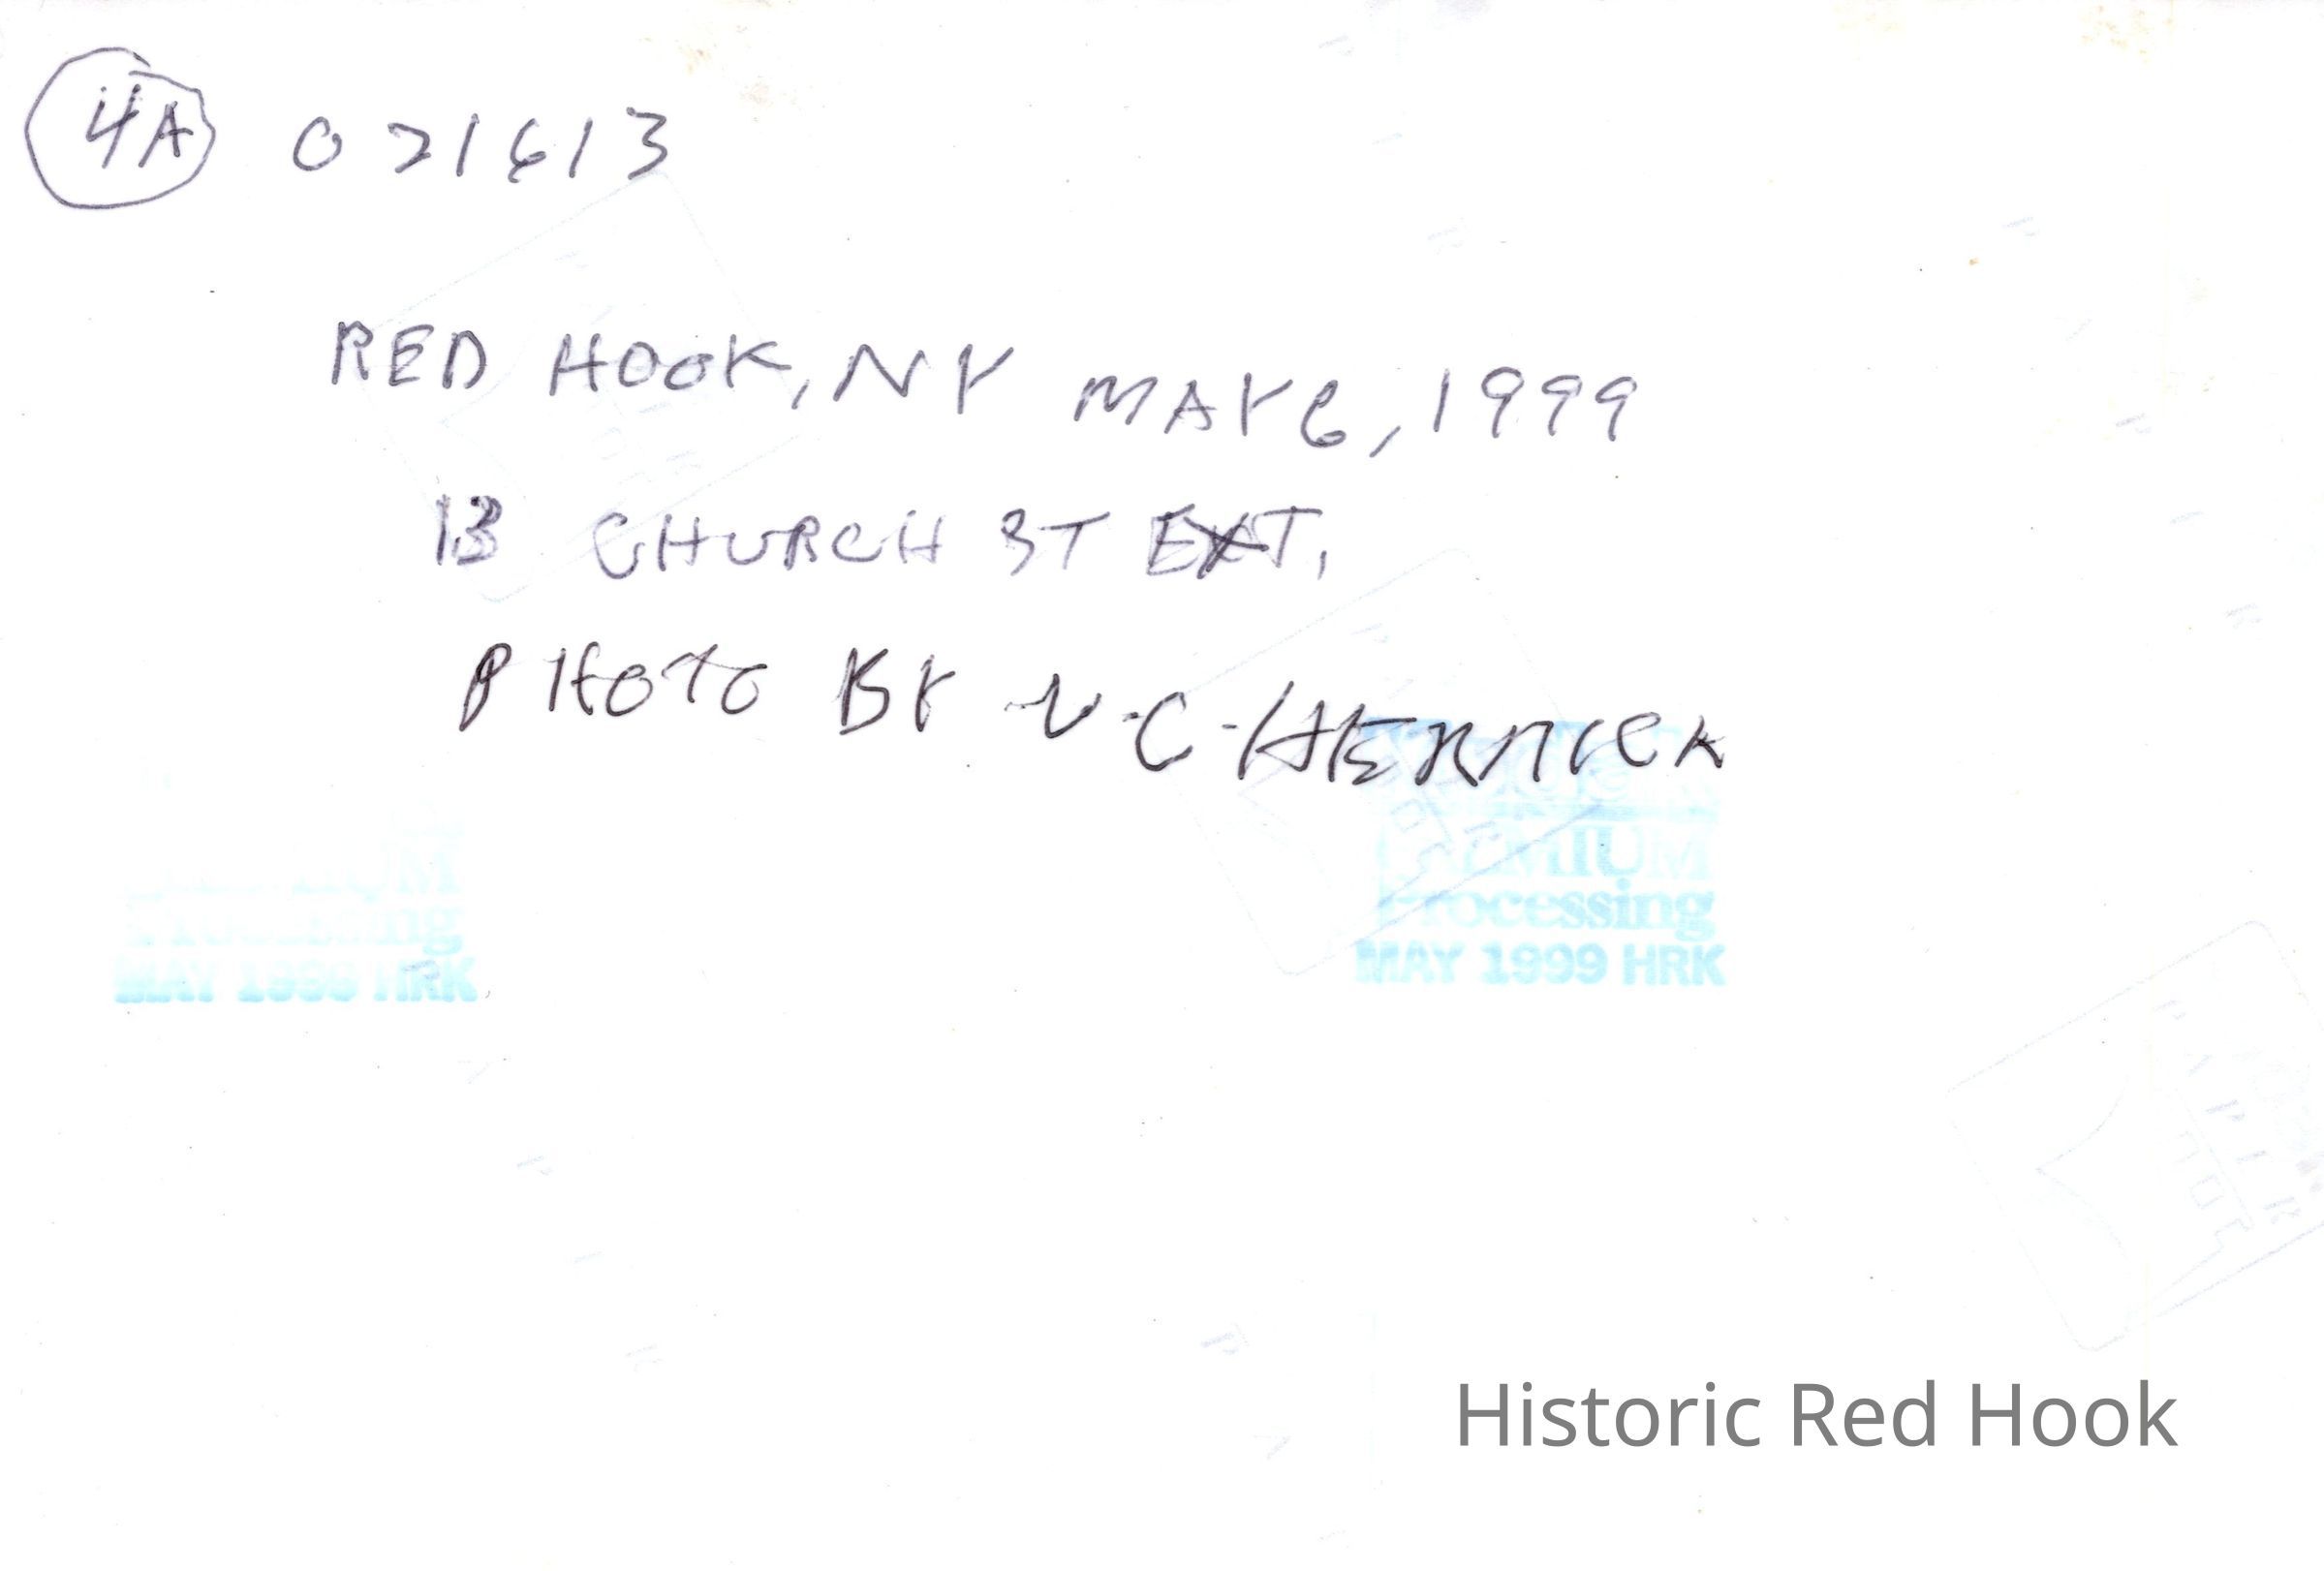 4A 021613
RED HOOK, NY MAY 6, 1999
13 CHURCH ST EXT.
PHOTO BY V-C-HERRICK
PREMIUM
Processing
MAY 1999 HRK
Processing
MAY 1999 HRK
Historic Red Hook